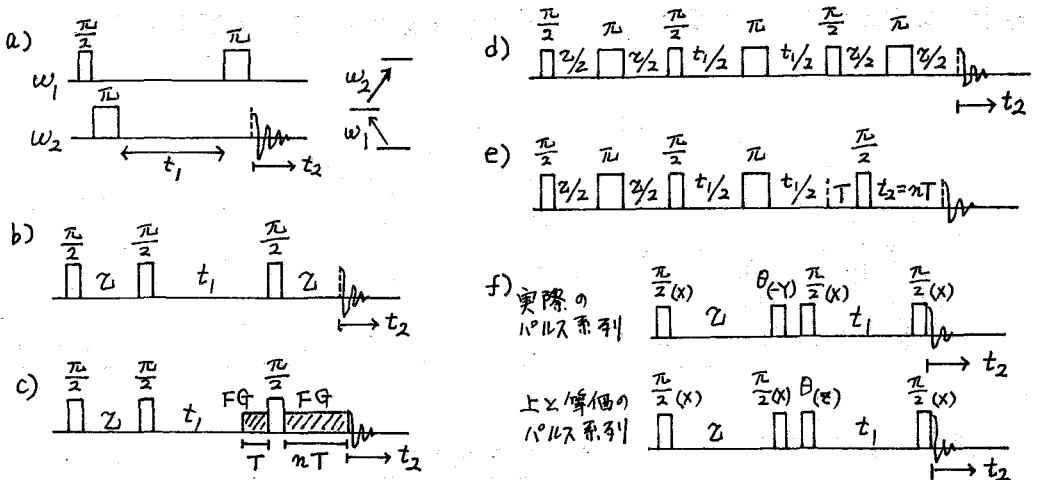 a)
π/2
π
ω1
π
ω2
t1
t2
ω2
ω1
b)
π/2 π/2 π/2
τ t1 τ
t2
c)
π/2 π/2 π/2
FG FG
τ t1
T nT
t2
d)
π/2 π π/2 π π/2 π
τ/2 τ/2 t1/2 t1/2 τ/2 τ/2
t2
e)
π/2 π π/2 π π/2
τ/2 τ/2 t1/2 t1/2 T t2=nT
f) 実際の
パルス系列
π/2(X) θ(-Y) π/2(X) π/2(X)
τ t1
t2
上と等価の
パルス系列
π/2(X) π/2(X) θ(z) π/2(X)
τ t1
t2